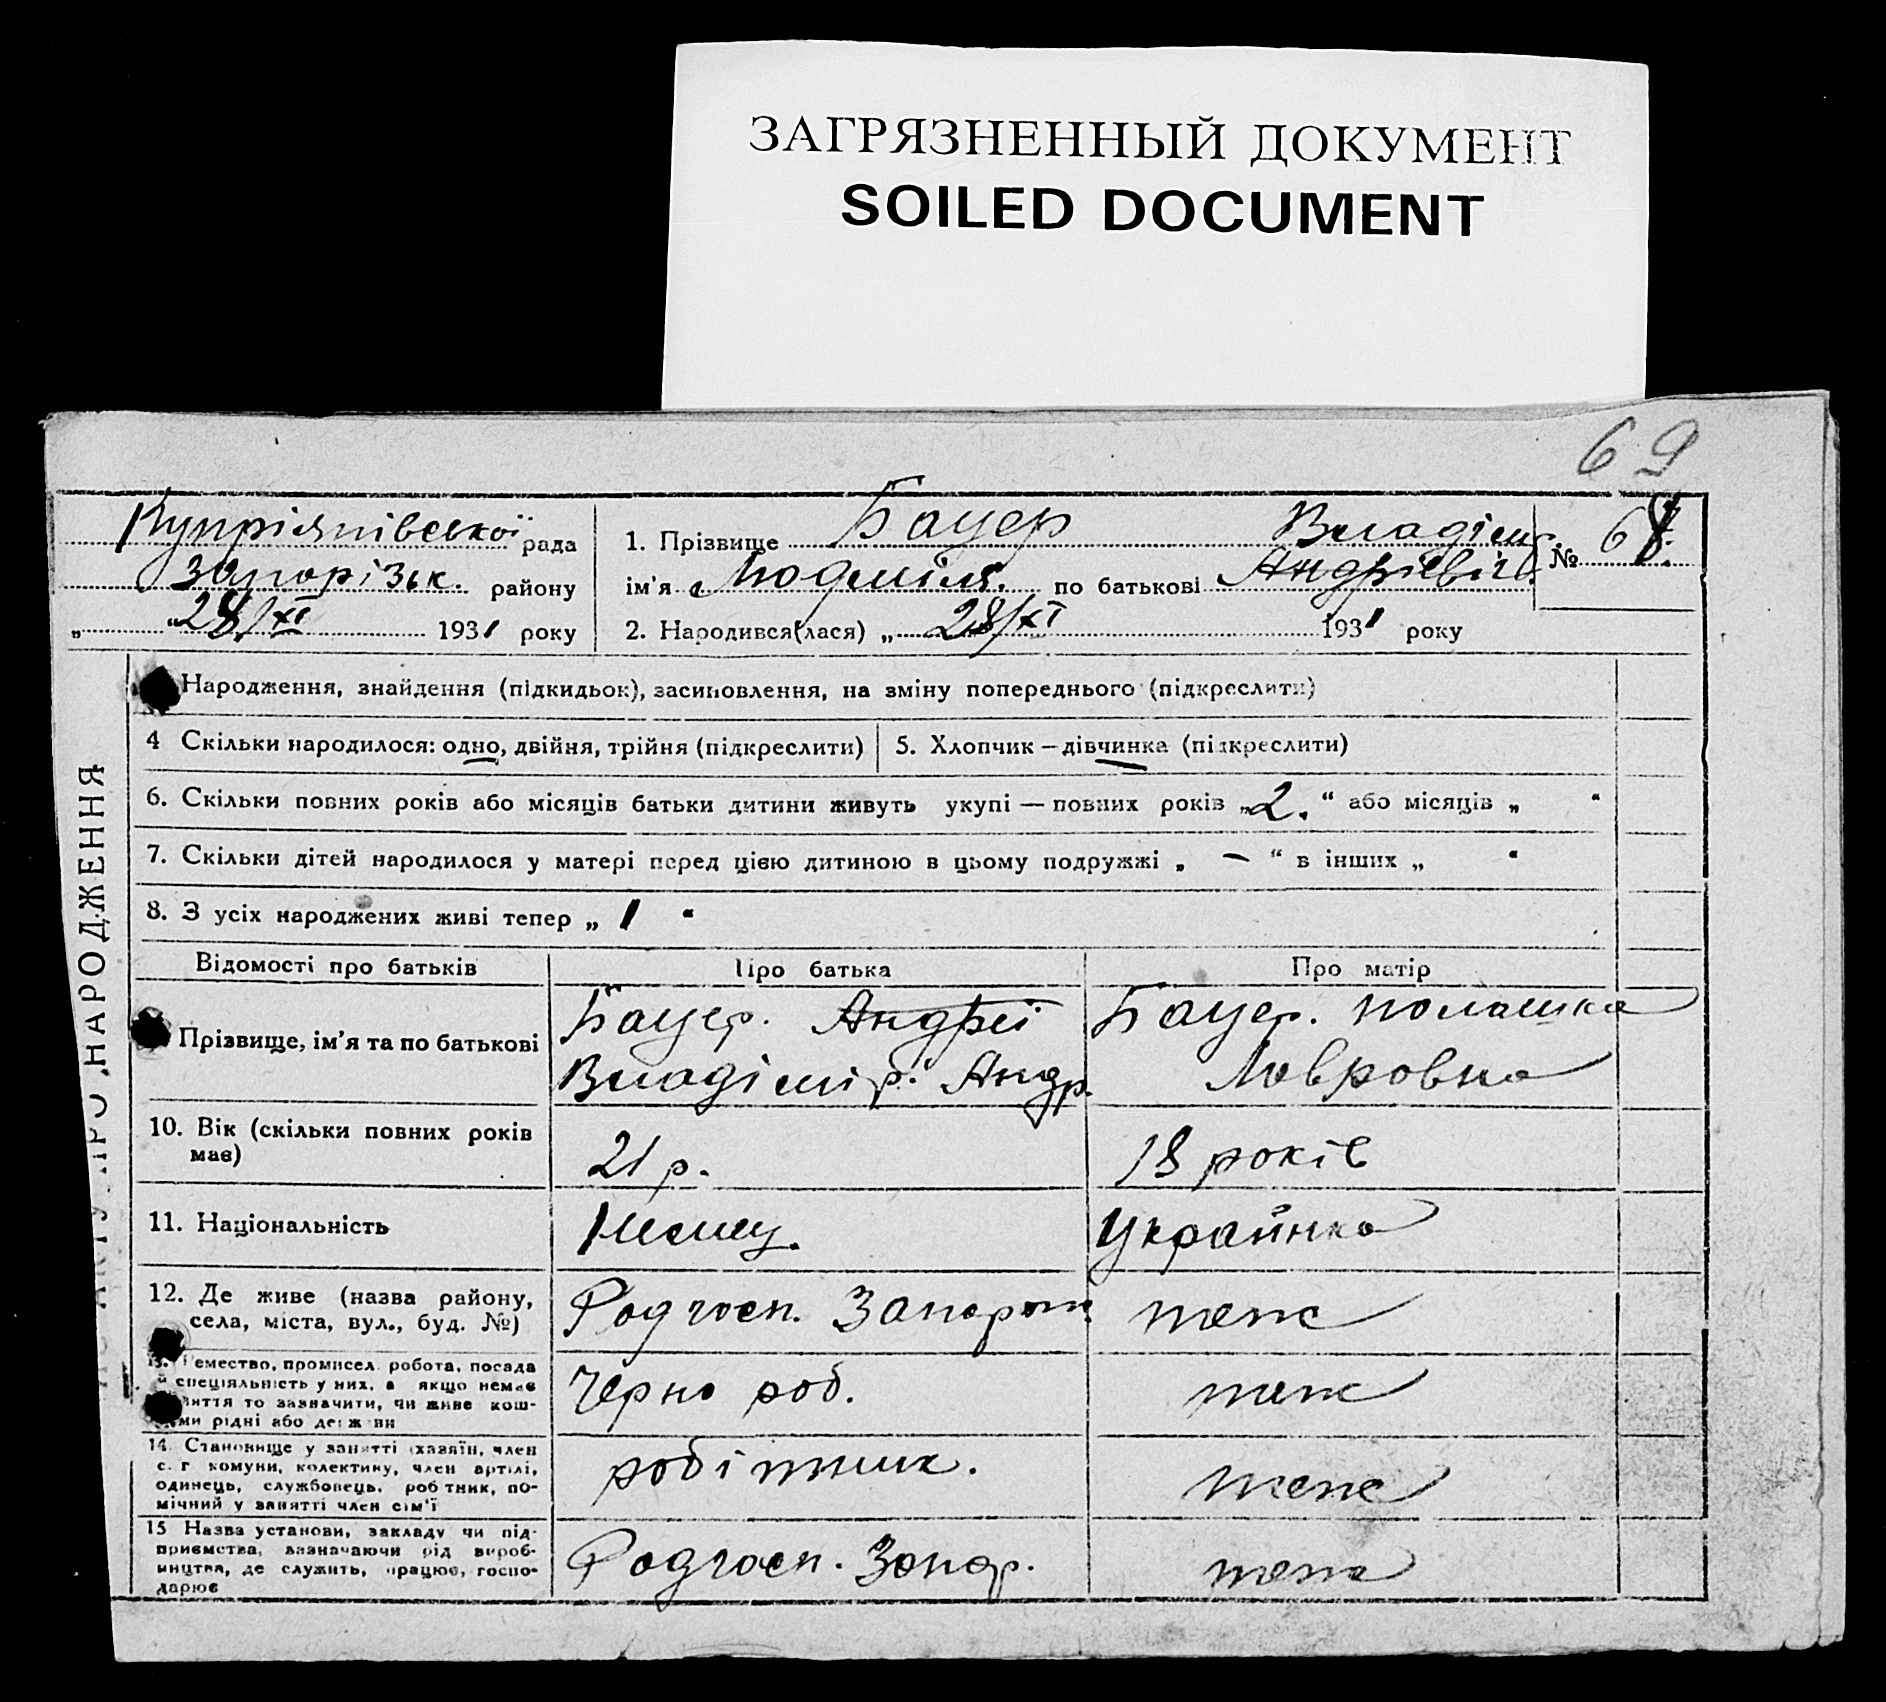 ЗАГРЯЗНЕННЫЙ ДОКУМЕНТ
SOILED DOCUMENT
69
Купріянівської рада
Запорізьк. району
„ “ 28/XI 1931 року
1. Прізвище Бауер
ім'я Людміля. по батькові Владімір. Андрієвіч
№ 68.
2. Народився(лася) „ 28/XI 1931 року
Народження, знайдення (підкидьок), засиновлення, на зміну попереднього (підкреслити)
4 Скільки народилося: одно, двійня, трійня (підкреслити)
5. Хлопчик – дівчинка (підкреслити)
6. Скільки повних років або місяців батьки дитини живуть укупі — повних років „2.“ або місяців „ “
7. Скільки дітей народилося у матері перед цією дитиною в цьому подружжі „ – “ в інших „ “
8. З усіх народжених живі тепер „ 1 “
Відомості про батьків
Про батька
Про матір
Прізвище, ім'я та по батькові
Бауер. Андрєї
Владімір. Андр.
Бауер. Полашка
Лавровна
10. Вік (скільки повних років
має)
21 р.
18 років
11. Національність
Немец.
Українка
12. Де живе (назва району,
села, міста, вул., буд. №)
Радгосп. Запор
теж
13. Ремество, промисел. робота, посада
й спеціяльність у них, а якщо немає
життя то зазначити, чи живе кош-
ми рідні або держави
Черно роб.
теж
14. Становище у занятті (хазяїн, член
с. г комуни, колективу, член артілі,
одинець, службовець, робітник, по-
мічний у занятті член сім'ї
робітник.
теж
15 Назва установи, закладу чи під-
приємства, зазначаючи рід вироб-
ництва, де служить, працює, госпо-
дарює
Радгосп. Запор.
теж
ПРО НАРОДЖЕННЯ